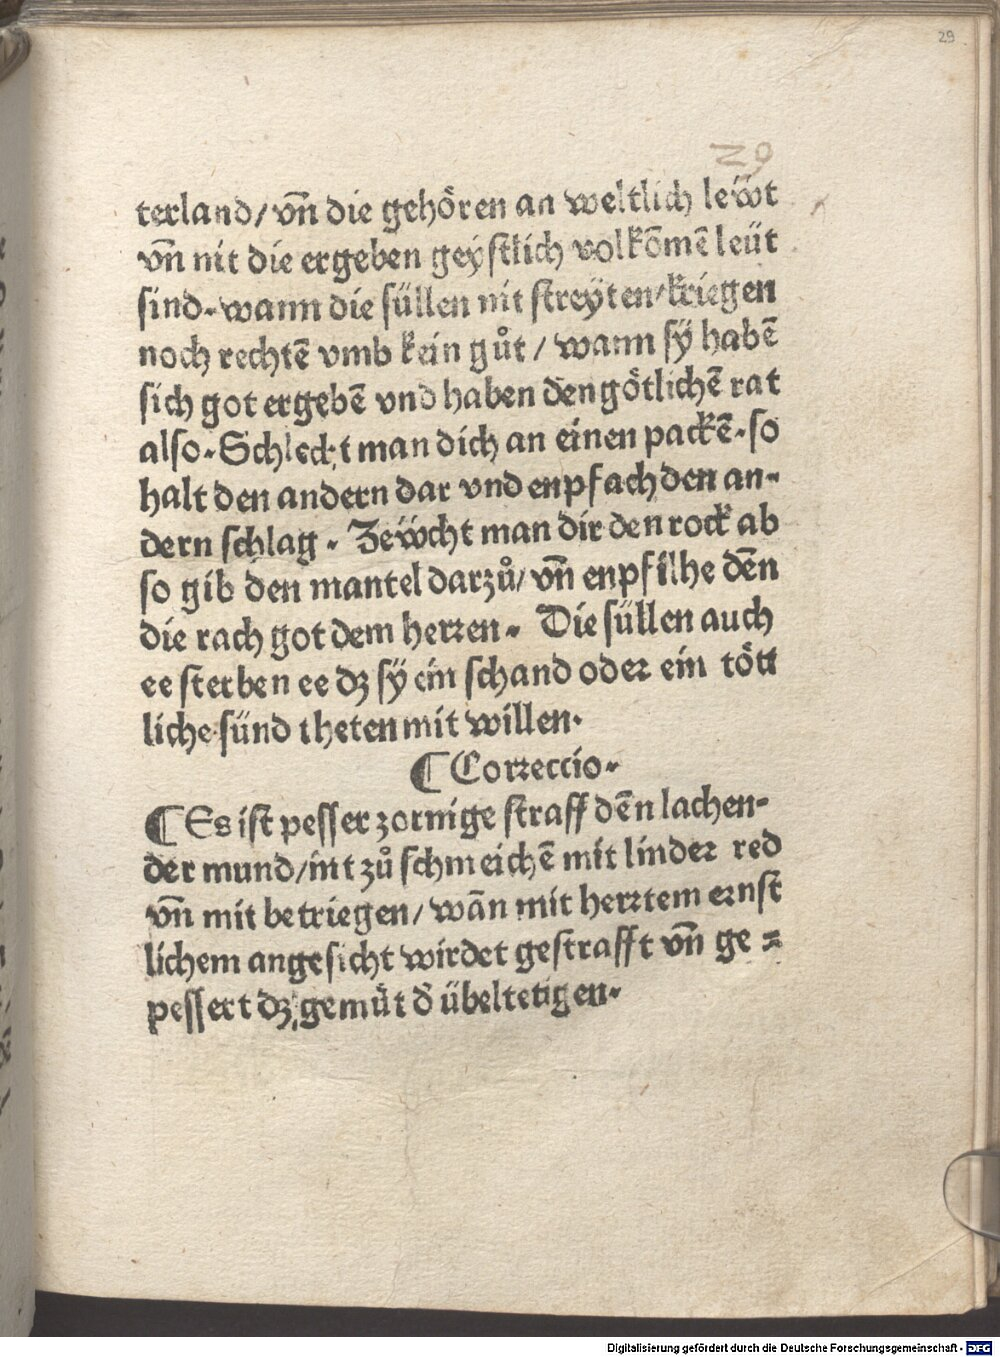 29
29
terland/ vn̄ die gehören an weltlich leẅt
vn̄ nit die ergeben geystlich volkōmē leüt
sind. wann die süllen nit streyten/kriegen
noch rechtē vmb kein gůt / wann sÿ habē
sich got ergebē vnd haben den götlichē rat
also. Schlecht man dich an einen packē. so
halt den andern dar vnd enpfach den an-
dern schlag. Zeẅcht man dir den rock ab
so gib den mantel darzů/ vn̄ enpfilhe dēn
die rach got dem herꝛen. Die süllen auch
ee sterben ee dꝫ sÿ ein schand odeꝛ ein tött
liche sünd theten mit willen.
¶ Corꝛeccio.
¶ Es ist pesser zornige straff dēn lachen-
der mund/nit zů schmeichē mit lindeꝛ red
vn̄ mit betriegen/ wān mit herꝛtem eꝛnst
lichem angesicht wirdet gestrafft vn̄ ge =
pessert dꝫ gemüt d̄ übeltetigen.
Digitalisierung gefördert durch die Deutsche Forschungsgemeinschaft - DFG